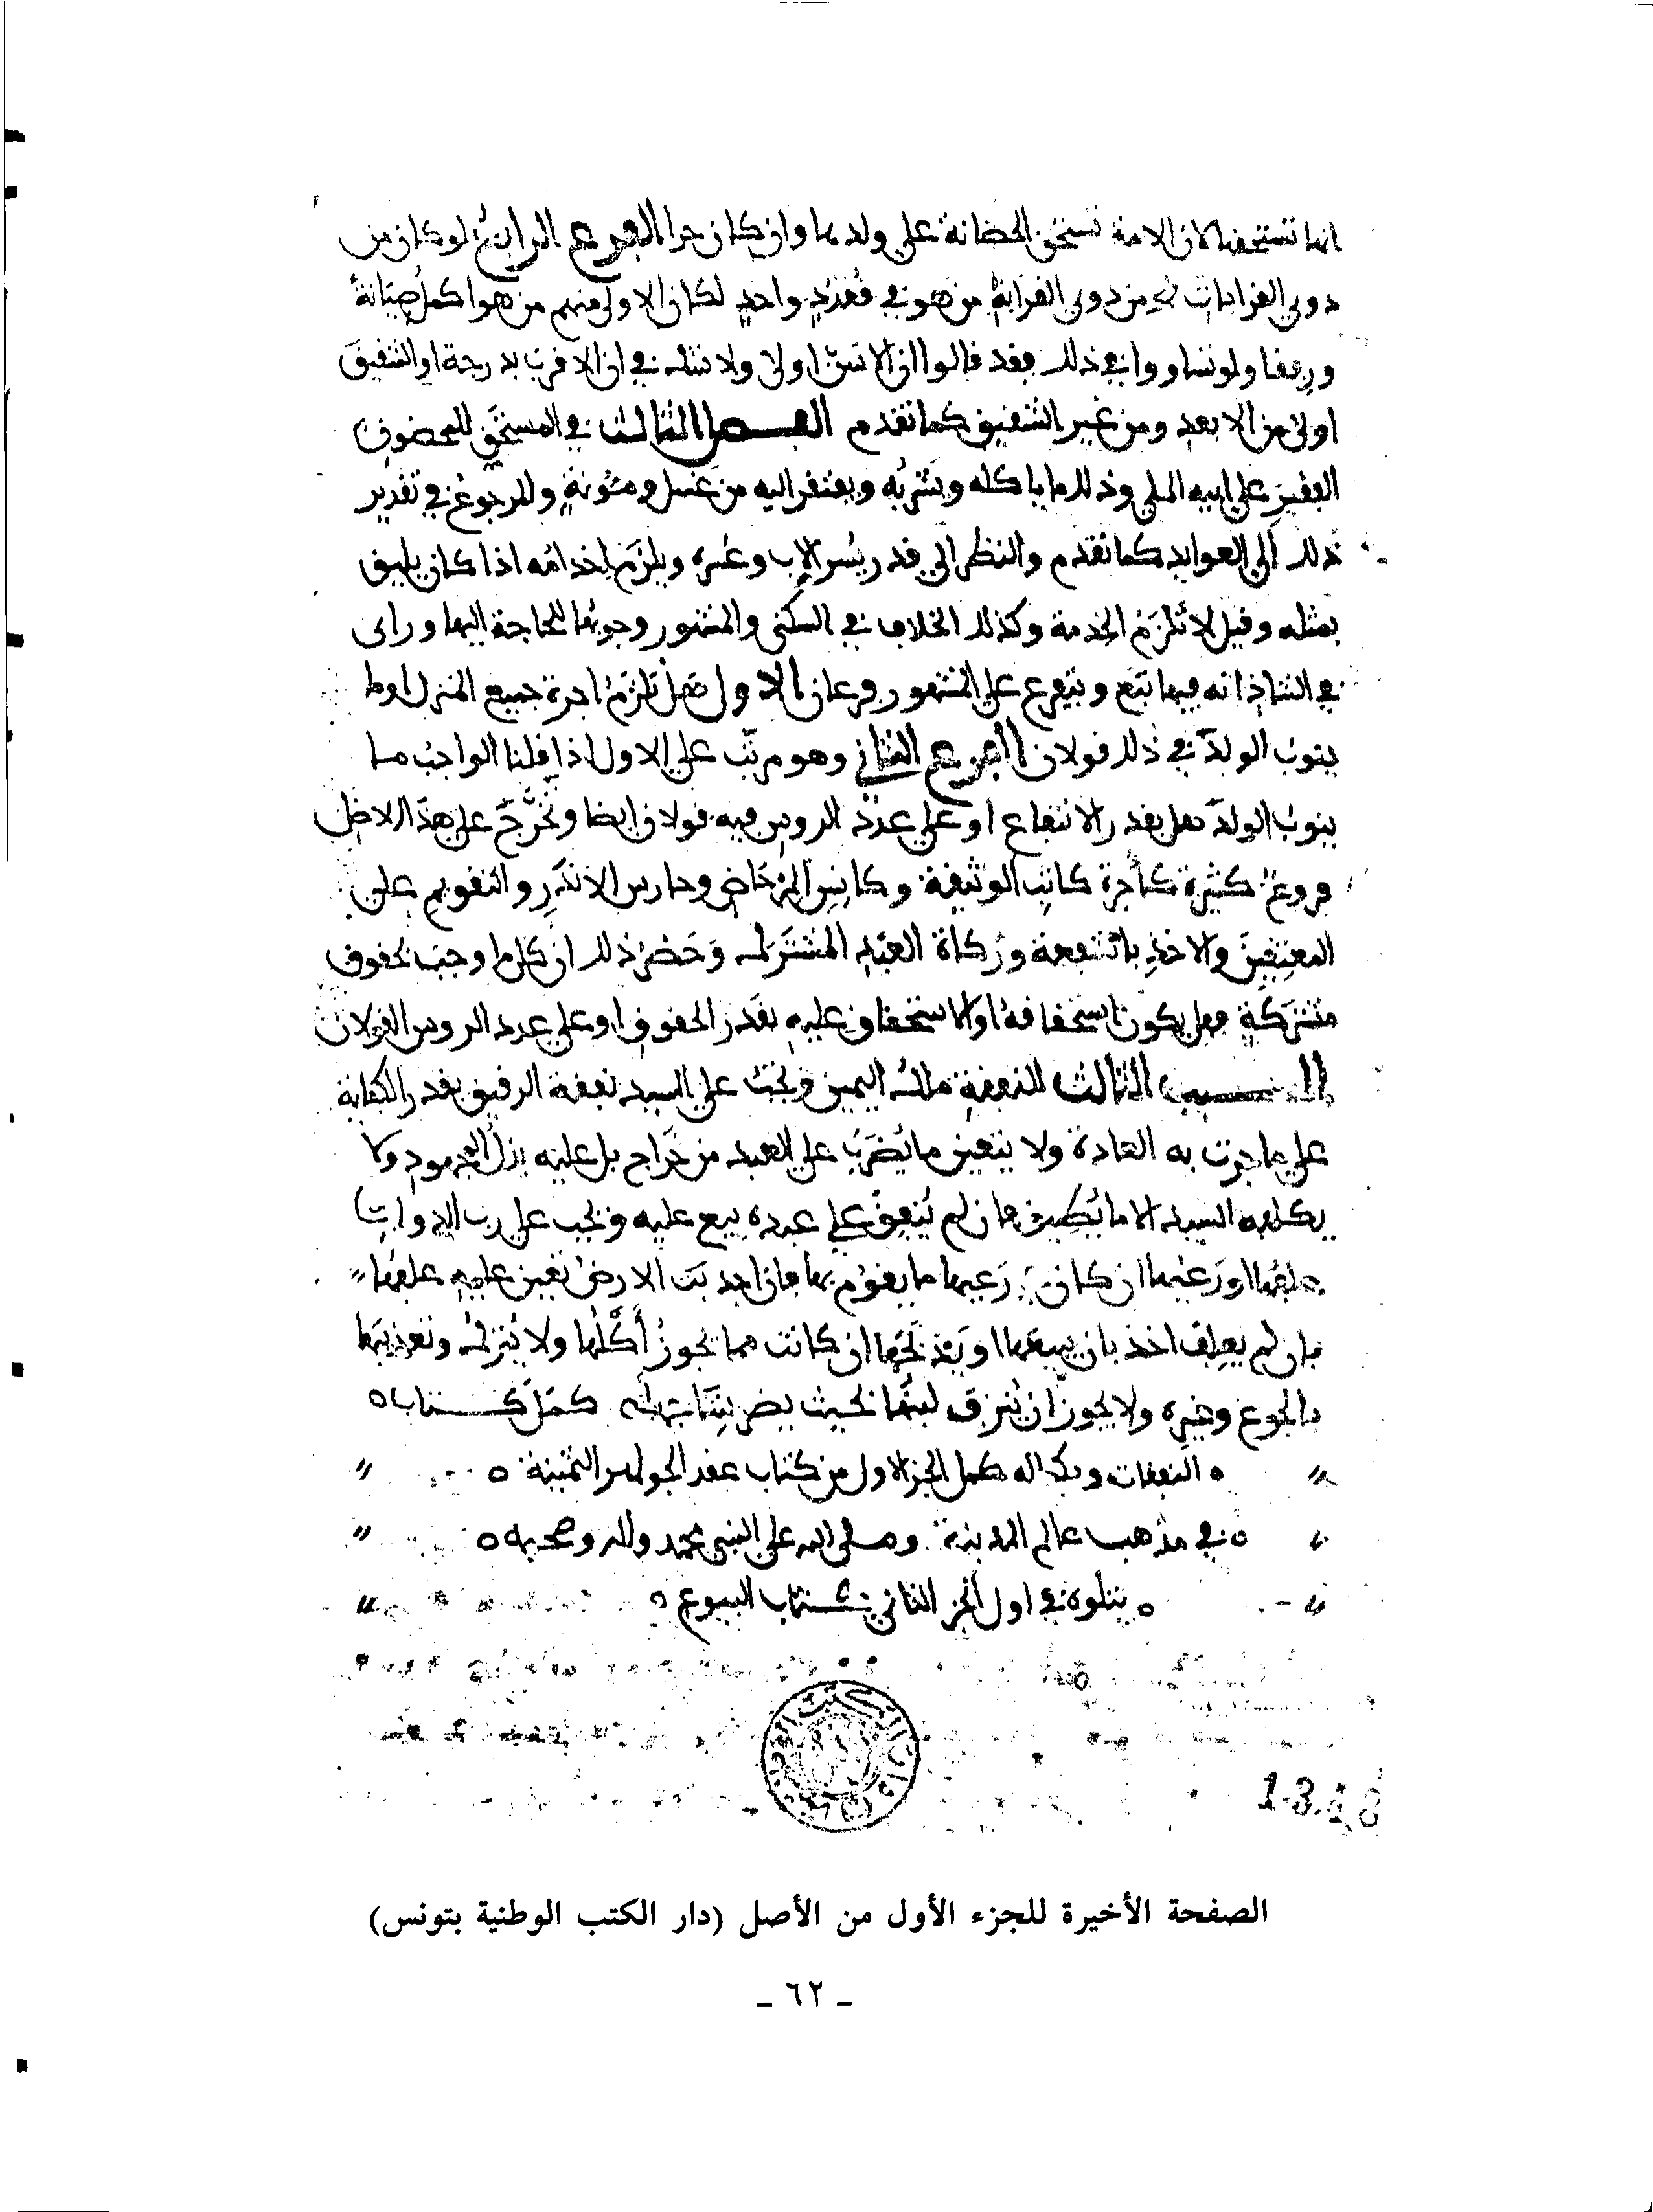 انها تستحقه لان الامة تستحق الحضانة على ولدها وان كان حرا الفرع الرابع لو كان من
ذوي القرابات من ذوي القرابة من هو في قعدد واحد لكان الاولى منهم من هو اكمل صيانة
ورفقا ولو تساووا في ذلك فقد قالوا ان الاسن اولى ولا شك في ان الاقرب بدرجة او الشقيق
اولى من الابعد ومن غير الشقيق كما تقدم الفصل الثالث في المستحق للمحضون
الفقير على ابيه الملي وذلك ما ياكله ويشربه ويفتقر اليه من غسل ومئونة والمرجوع في تقدير
ذلك الى العوايد كما تقدم والنظر الى قدر يسر الاب وعسره ويلزم اخدامه اذا كان يليق
بمثله وقيل لا تلزم الخدمة وكذلك الخلاف في السكنى والمشهور وجوبها للحاجة اليها وراى
في الشاذ انه فيها تبع ويتفرع على المشهور فرعان الاول هل تلزم اجرة جميع المنزل او ما
ينوب الولد في ذلك قولان الفرع الثاني وهو مرتب على الاول اذا قلنا الواجب ما
ينوب الولد هل بقدر الانتفاع او على عدد الروس فيه قولان ايضا وتخرج على هذا الاصل
فروع كثيرة كأجرة كاتب الوثيقة وكانس المرحاض وحارس الاندر والتقويم على
المعتقين والاخذ بالشفعة وزكاة العبد المشترك وحصر ذلك ان كل ما وجب بحقوق
مشتركة فهل يكون استحقاقه او الاستحقاق عليه بقدر الحقوق او على عدد الروس القولان
السبب الثالث للنفقة ملك اليمين وتجب على السيد نفقة الرقيق بقدر الكفاية
على ما جرت به العادة ولا يتعين ما يضرب على العبد من خراج بل عليه بذل المجهود ولا
يكلفه السيد الا ما يطيق فان لم ينفق على عبده بيع عليه وتجب على رب الدواب
علفها او رعيها ان كان في رعيها ما يقوم بها فان اجدبت الارض تعين عليه علفها
فان لم يعلف اخذ بان يبيعها او يذبحها ان كانت مما يجوز أكلها ولا يترك وتعذيبها
بالجوع وغيره ولا يجوز ان ينزف لبنها بحيث يضر بنتاجها كمل كتاب
النفقات وبكماله كمل الجز الاول من كتاب عقد الجواهر الثمينة
في مذهب عالم المدينة وصلى الله على النبي محمد وآله وصحبه
يتلوه في اول الجز الثاني كتاب البيوع
دار الكتب
الصفحة الأخيرة للجزء الأول من الأصل (دار الكتب الوطنية بتونس)
ـ ٦٢ ـ